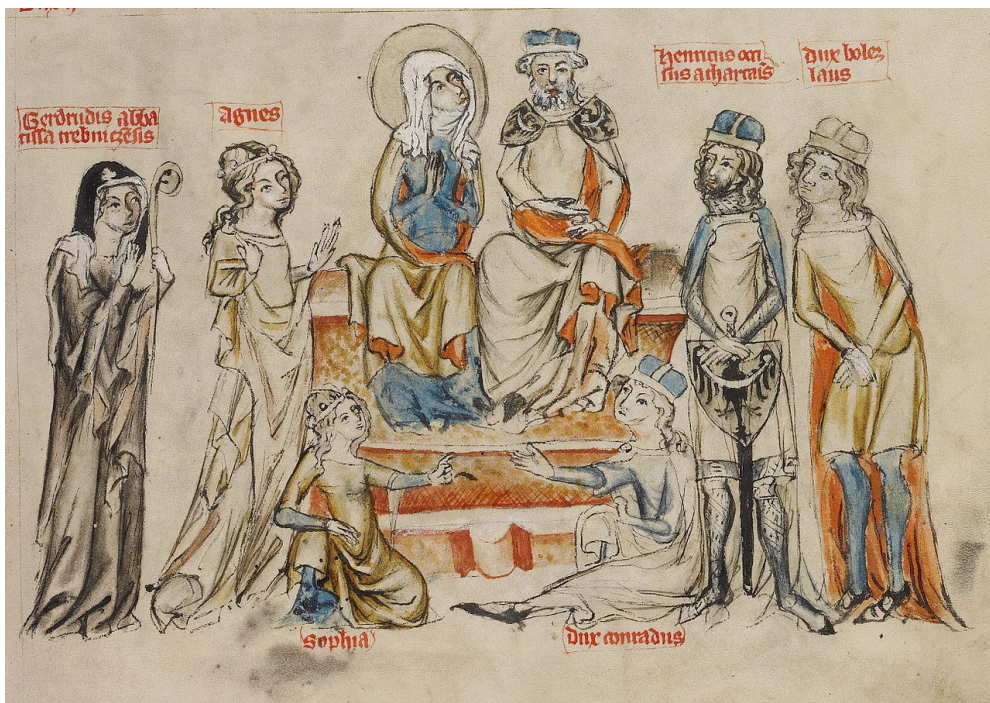 Gerdrudis abba
tissa trebniczēsis
Agnes
Henricus occi
sus a thartaris
Dux bolez
laus
Sophia
Dux conradus